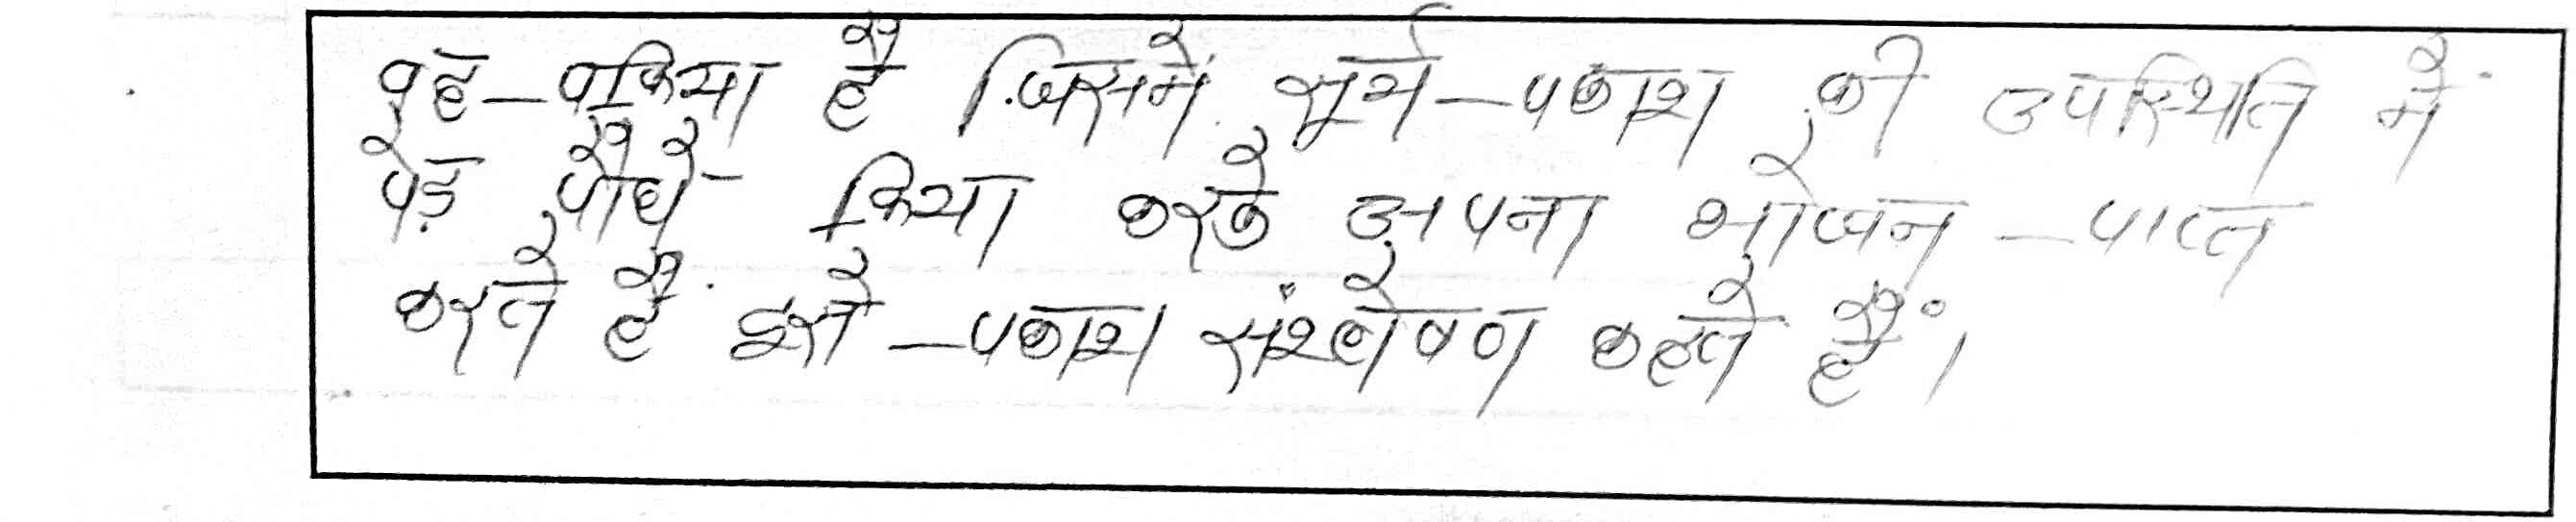 वह प्रक्रिया है जिसमें सूर्य प्रकाश की उपस्थिति में
पेड़ पौधे क्रिया करके अपना भोजन प्राप्त
करते हैं इसे प्रकाश संश्लेषण कहते हैं।